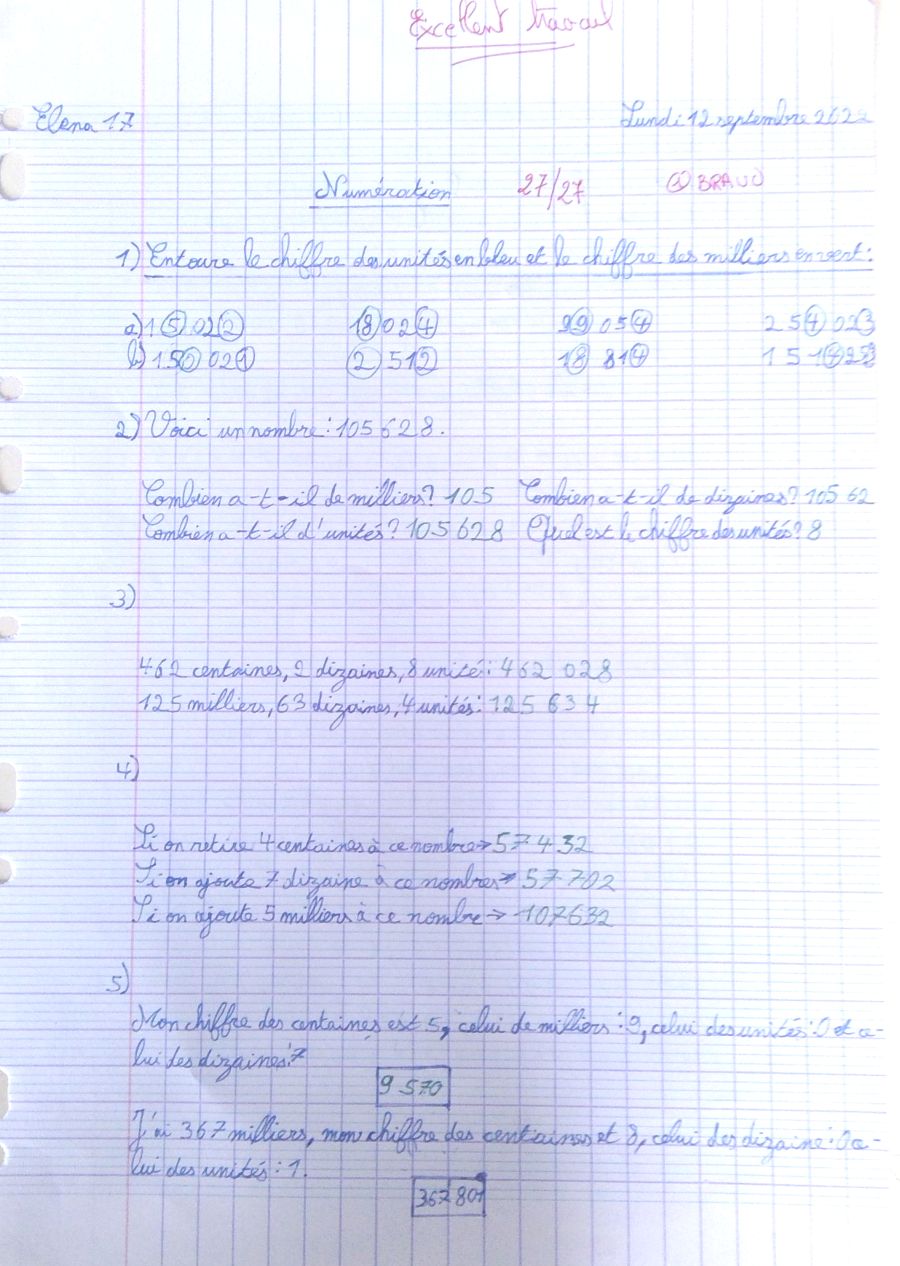 Excellent travail
Elena 17 Lundi 12 septembre 2022
Numération 27/27 BRAVO
1) Entoure le chiffre des unités en bleu et le chiffre des milliers en vert :
a) 15 022 18 024 99 054 254 023
b) 150 021 2 512 18 814 151 428
2) Voici un nombre : 105 628.
Combien a-t-il de milliers? 105 Combien a-t-il de dizaines? 105 62
Combien a-t-il d'unités? 105 628 Quel est le chiffre des unités? 8
3)
462 centaines, 2 dizaines, 8 unité : 462 028
125 milliers, 63 dizaines, 4 unités : 125 634
4)
Si on retire 4 centaines à ce nombre → 57 432
Si on ajoute 7 dizaine à ce nombre → 57 702
Si on ajoute 5 milliers à ce nombre → 107632
5)
Mon chiffre des centaines est 5, celui de milliers : 9, celui des unités : 0 et ce-
lui des dizaines : 7
9 570
J'ai 367 milliers, mon chiffre des centaines et 8, celui des dizaine : 0 ce-
lui des unités : 1.
367 801